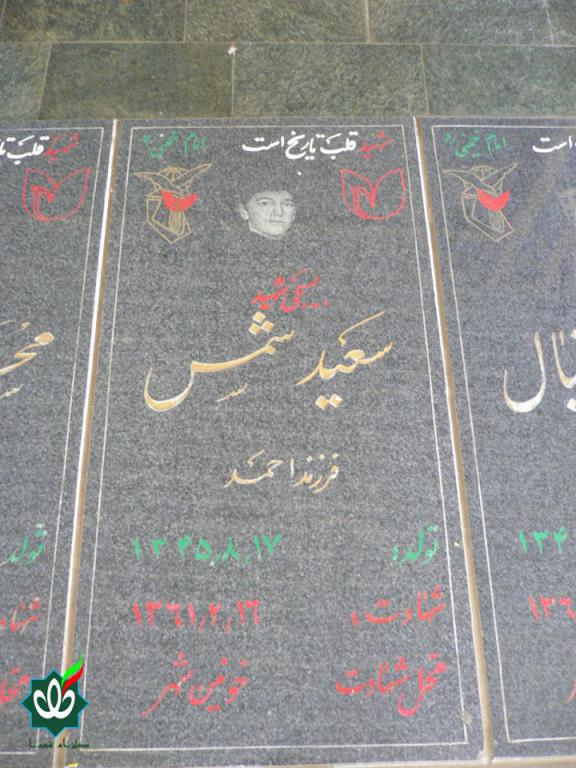 شهید قلب تاریخ است امام خمینی ره
بسیجی شهید
سعید شمس
فرزند احمد
تولد: ۱۳۴۵٫۸٫۱۷
شهادت: ۱۳۶۱٫۲٫۱۶
محل شهادت خونین شهر
شهید قلب
تولد
است امام خمینی ره
۱۳۴
۱۳۶